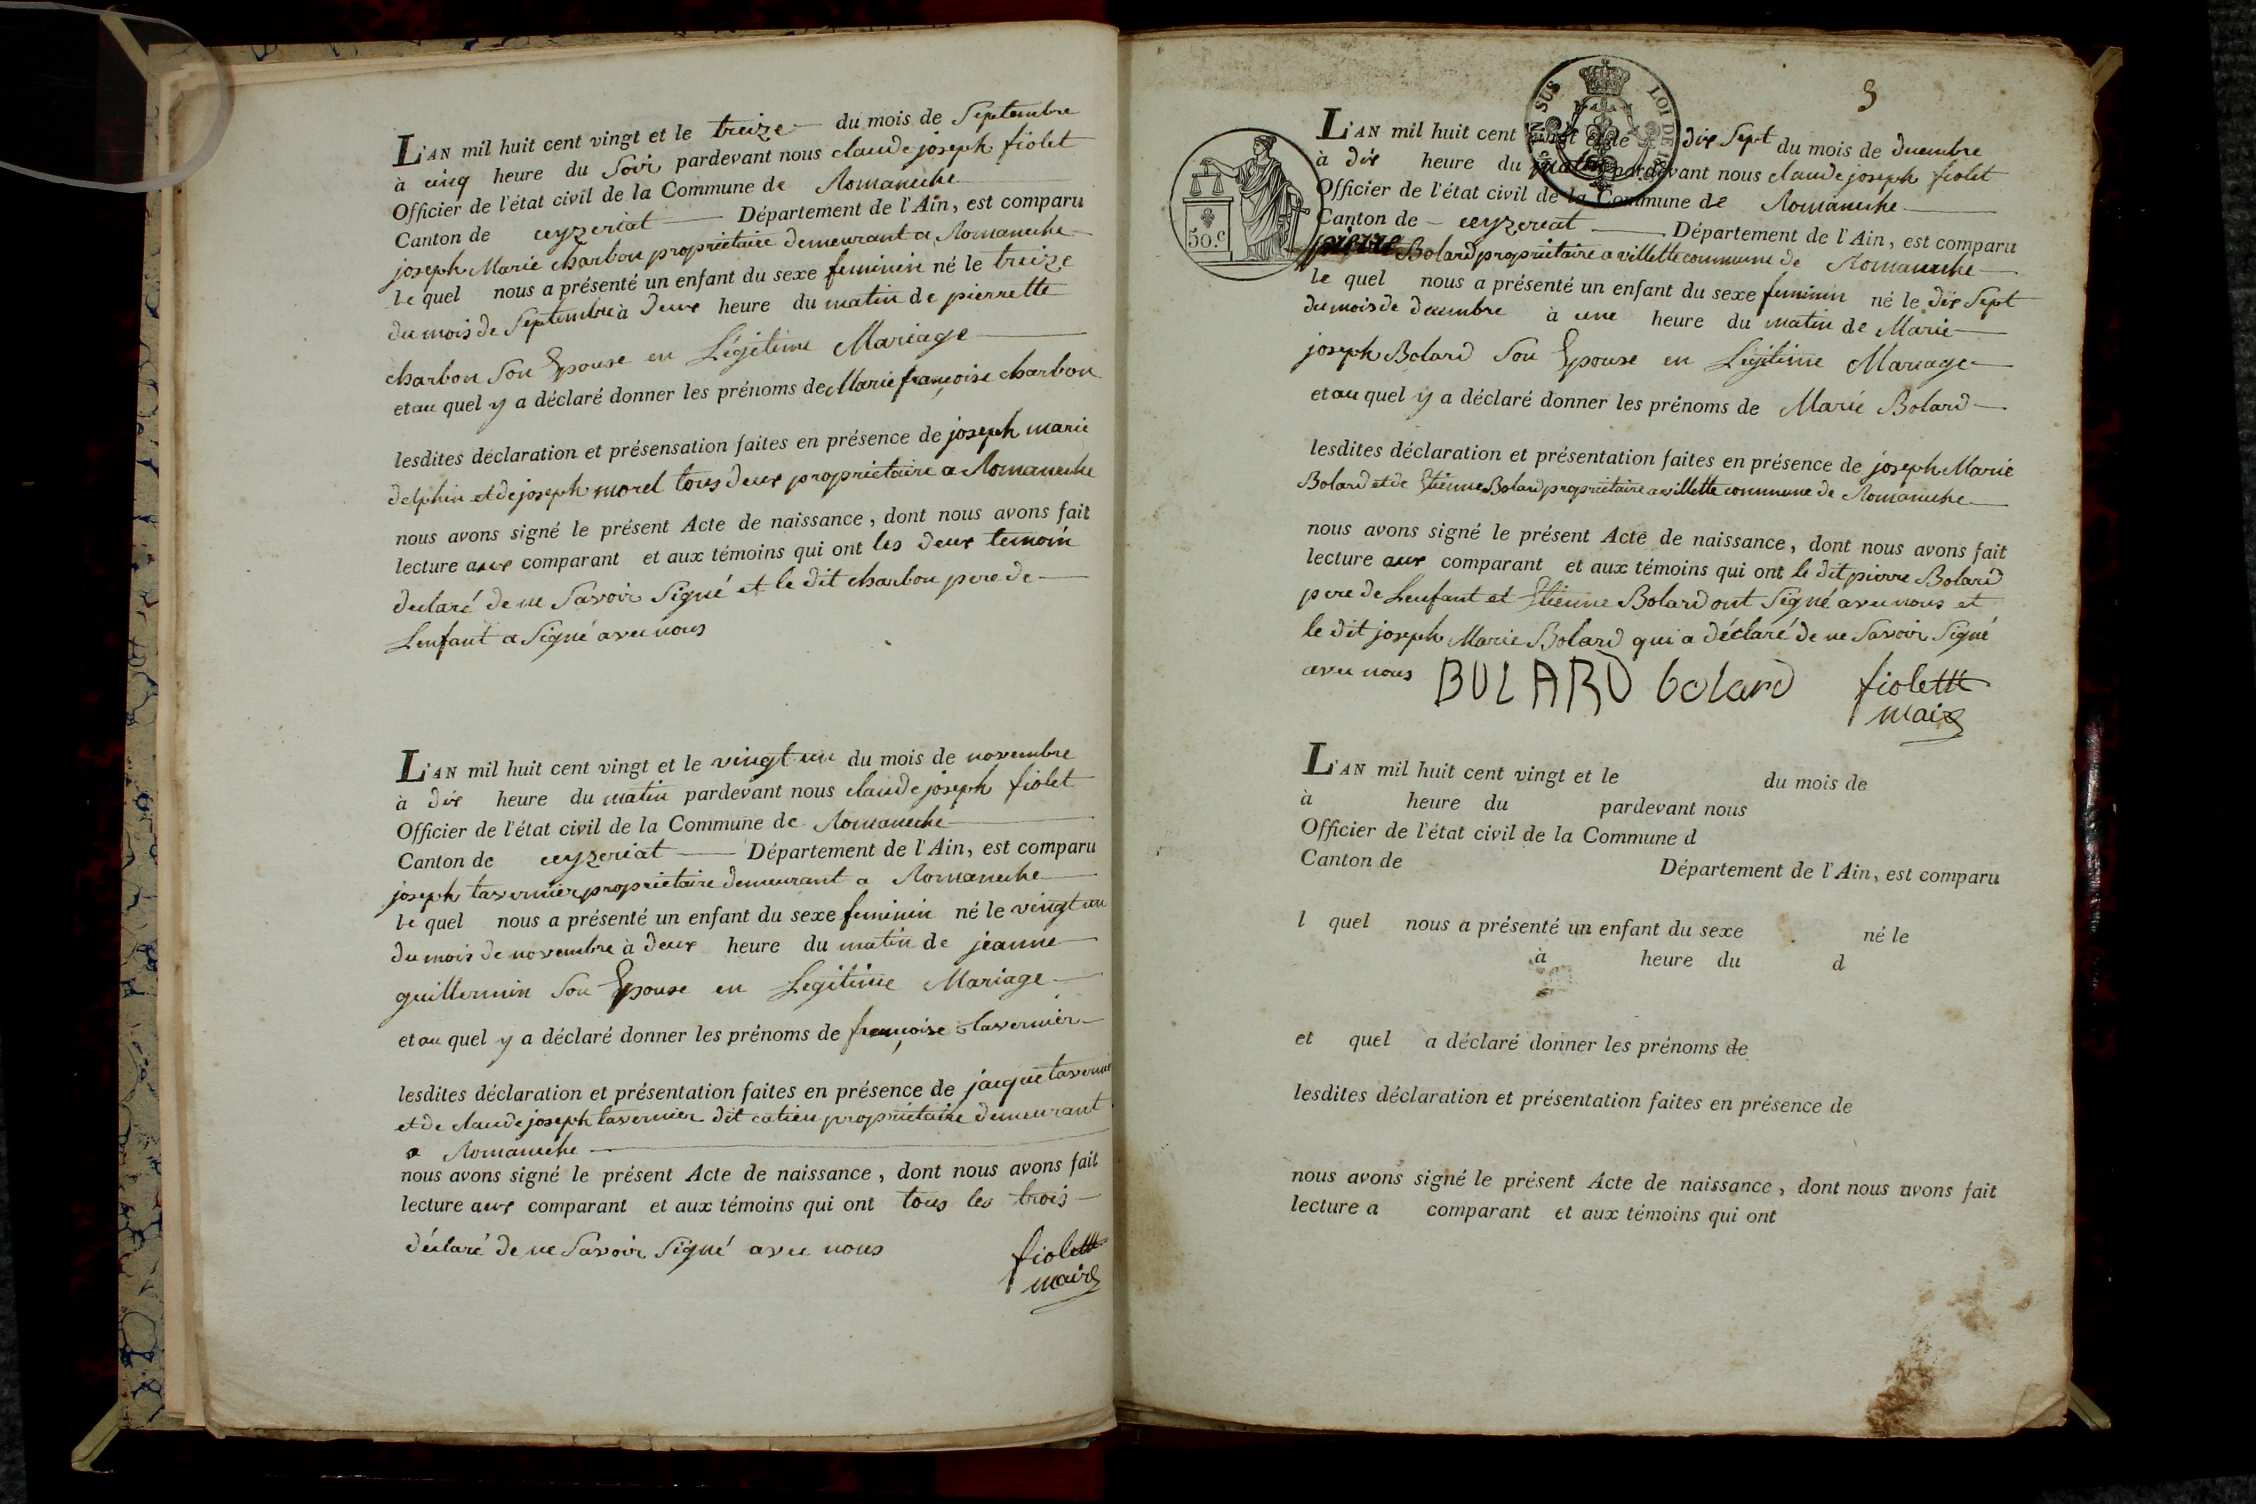 L'AN mil huit cent vingt et le treize du mois de Septembre
à cinq heure du Soir pardevant nous claude joseph fiolet
Officier de l'état civil de la Commune de Romaneche
Canton de ceyzeriat Département de l'Ain, est comparu
joseph Marie charbon proprietaire demeurant a Romaneche
le quel nous a présenté un enfant du sexe feminin né le treize
du mois de Septembre à deux heure du matin de pierrette
charbon Son Epouse en Légitime Mariage
et au quel y a déclaré donner les prénoms de Marie françoise charbon
lesdites déclaration et présensation faites en présence de joseph marie
delphin et de joseph morel tous deux proprietaire a Romaneche
nous avons signé le présent Acte de naissance, dont nous avons fait
lecture aux comparant et aux témoins qui ont les deux temoin
declaré de ne Savoir Signé et le dit charbon pere de
Lenfant a Signé avec nous
L'AN mil huit cent vingt et le vingt un du mois de novembre
à dix heure du matin pardevant nous claude joseph fiolet
Officier de l'état civil de la Commune de Romaneche
Canton de ceyzeriat Département de l'Ain, est comparu
joseph tavernier proprietaire demeurant a Romaneche
le quel nous a présenté un enfant du sexe feminin né le vingt un
du mois de novembre à deux heure du matin de jeanne
guillermin Son Epouse en Legitime Mariage
et au quel y a déclaré donner les prénoms de françoise tavernier
lesdites déclaration et présentation faites en présence de jacque tavernier
et de claude joseph tavernier dit catieu proprietaire demeurant
a Romaneche
nous avons signé le présent Acte de naissance, dont nous avons fait
lecture aux comparant et aux témoins qui ont tous les trois
déclaré de ne Savoir Signé avec nous
fiolettt
maire
3
SUS
LOI DE
50.c
L'AN mil huit cent vingt et le dix Sept du mois de decembre
à dix heure du matin pardevant nous claude joseph fiolet
Officier de l'état civil de la Commune de Romaneche
Canton de ceyzeriat Département de l'Ain, est comparu
pierre Bolard proprietaire a villette commune de Romaneche
le quel nous a présenté un enfant du sexe feminin né le dix Sept
du mois de decembre à une heure du matin de Marie
joseph Bolard Son Epouse en Legitime Mariage
et au quel y a déclaré donner les prénoms de Marie Bolard
lesdites déclaration et présentation faites en présence de joseph Marie
Bolard et de Etienne Bolard proprietaire a villette commune de Romaneche
nous avons signé le présent Acte de naissance, dont nous avons fait
lecture aux comparant et aux témoins qui ont le dit pierre Bolard
pere de Lenfant et Etienne Bolard ont Signé avec nous et
le dit joseph Marie Bolard qui a déclaré de ne Savoir Signé
avec nous BOLARD bolard fiolettt
maire
L'AN mil huit cent vingt et le du mois de
à heure du pardevant nous
Officier de l'état civil de la Commune d
Canton de Département de l'Ain, est comparu
l quel nous a présenté un enfant du sexe né le
à heure du d
et quel a déclaré donner les prénoms de
lesdites déclaration et présentation faites en présence de
nous avons signé le présent Acte de naissance, dont nous avons fait
lecture a comparant et aux témoins qui ont